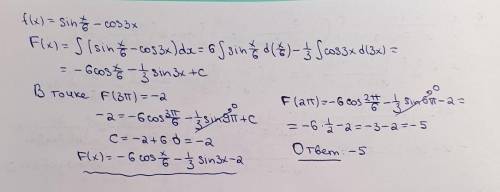 f(x) = sin x/6 - cos3x
F(x) = ∫(sin x/6 - cos3x)dx = 6∫sin x/6 d(x/6) - 1/3 ∫cos3x d(3x) =
= -6cos x/6 - 1/3 sin3x + C
В точке F(3π) = -2
-2 = -6cos 3π/6 - 1/3 sin9π + C
C = -2 + 6·0 = -2
F(x) = -6cos x/6 - 1/3 sin3x - 2
F(2π) = -6cos 2π/6 - 1/3 sin6π - 2 =
= -6·1/2 - 2 = -3 - 2 = -5
Ответ: -5